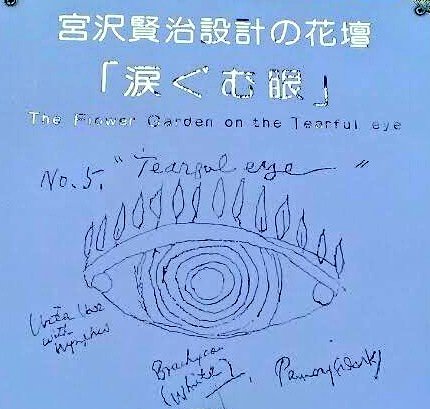 宮沢賢治設計の花壇
「涙ぐむ眼」
The Flower Garden on the Tearful eye
No. 5. "Tearful eye"
with
Brachycom
(White)